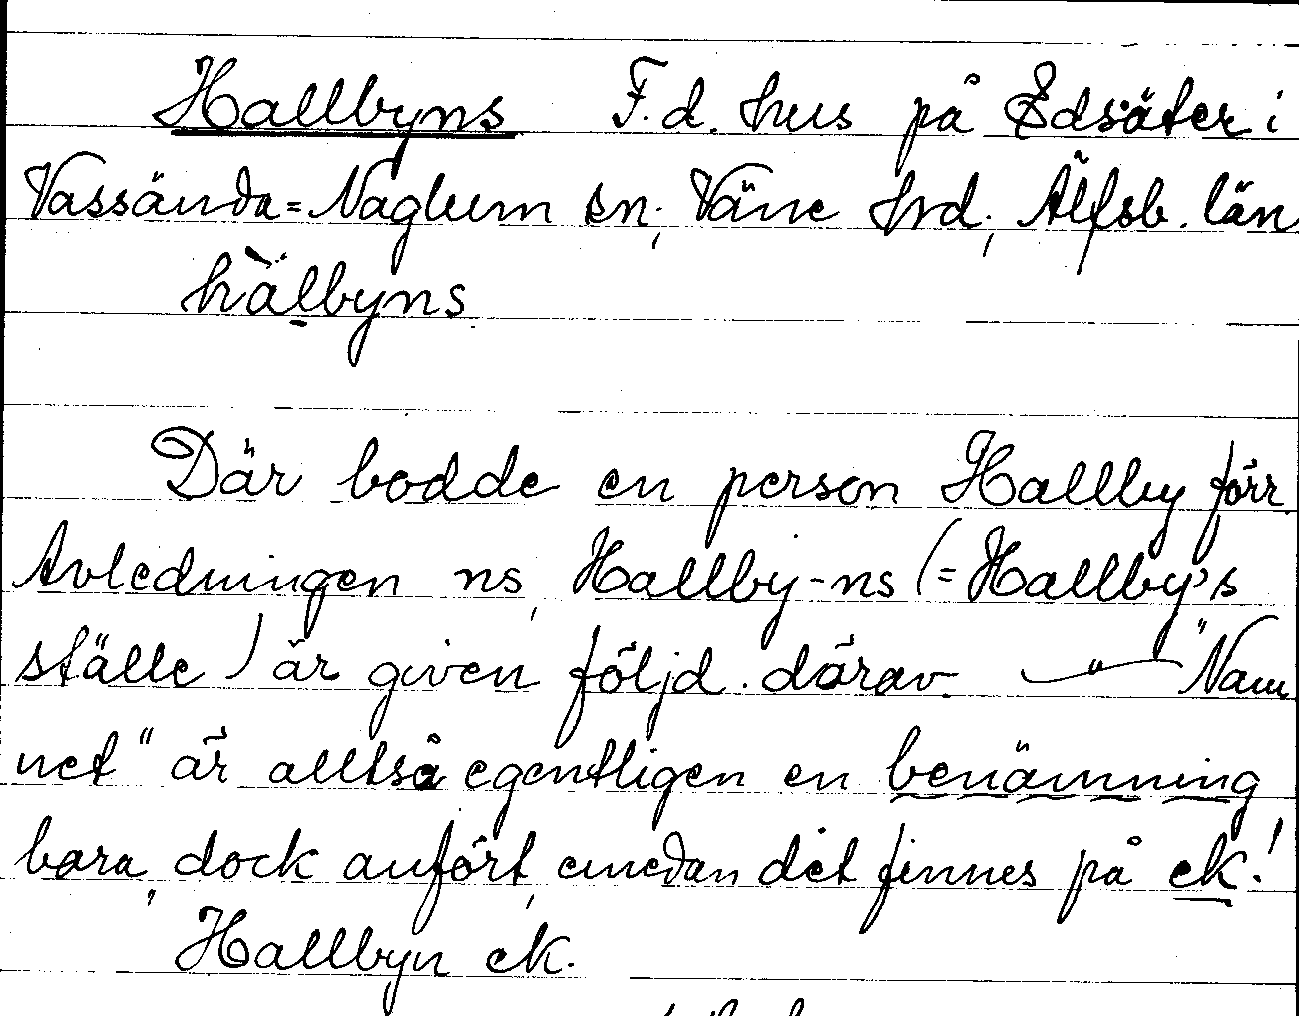 Hallbyns F.d. hus på Edsäter i
Vassända=Naglum sn, Väne hrd, Älfsb. län
hàlbyns
Där bodde en person Hallby förr.
Avledningen ns, Hallby-ns (=Hallby's
ställe) är given följd därav. — " — "Nam
net" är alltså egentligen en benämning
bara, dock anfört, emedan det finnes på ek.!
Hallbyn ek.